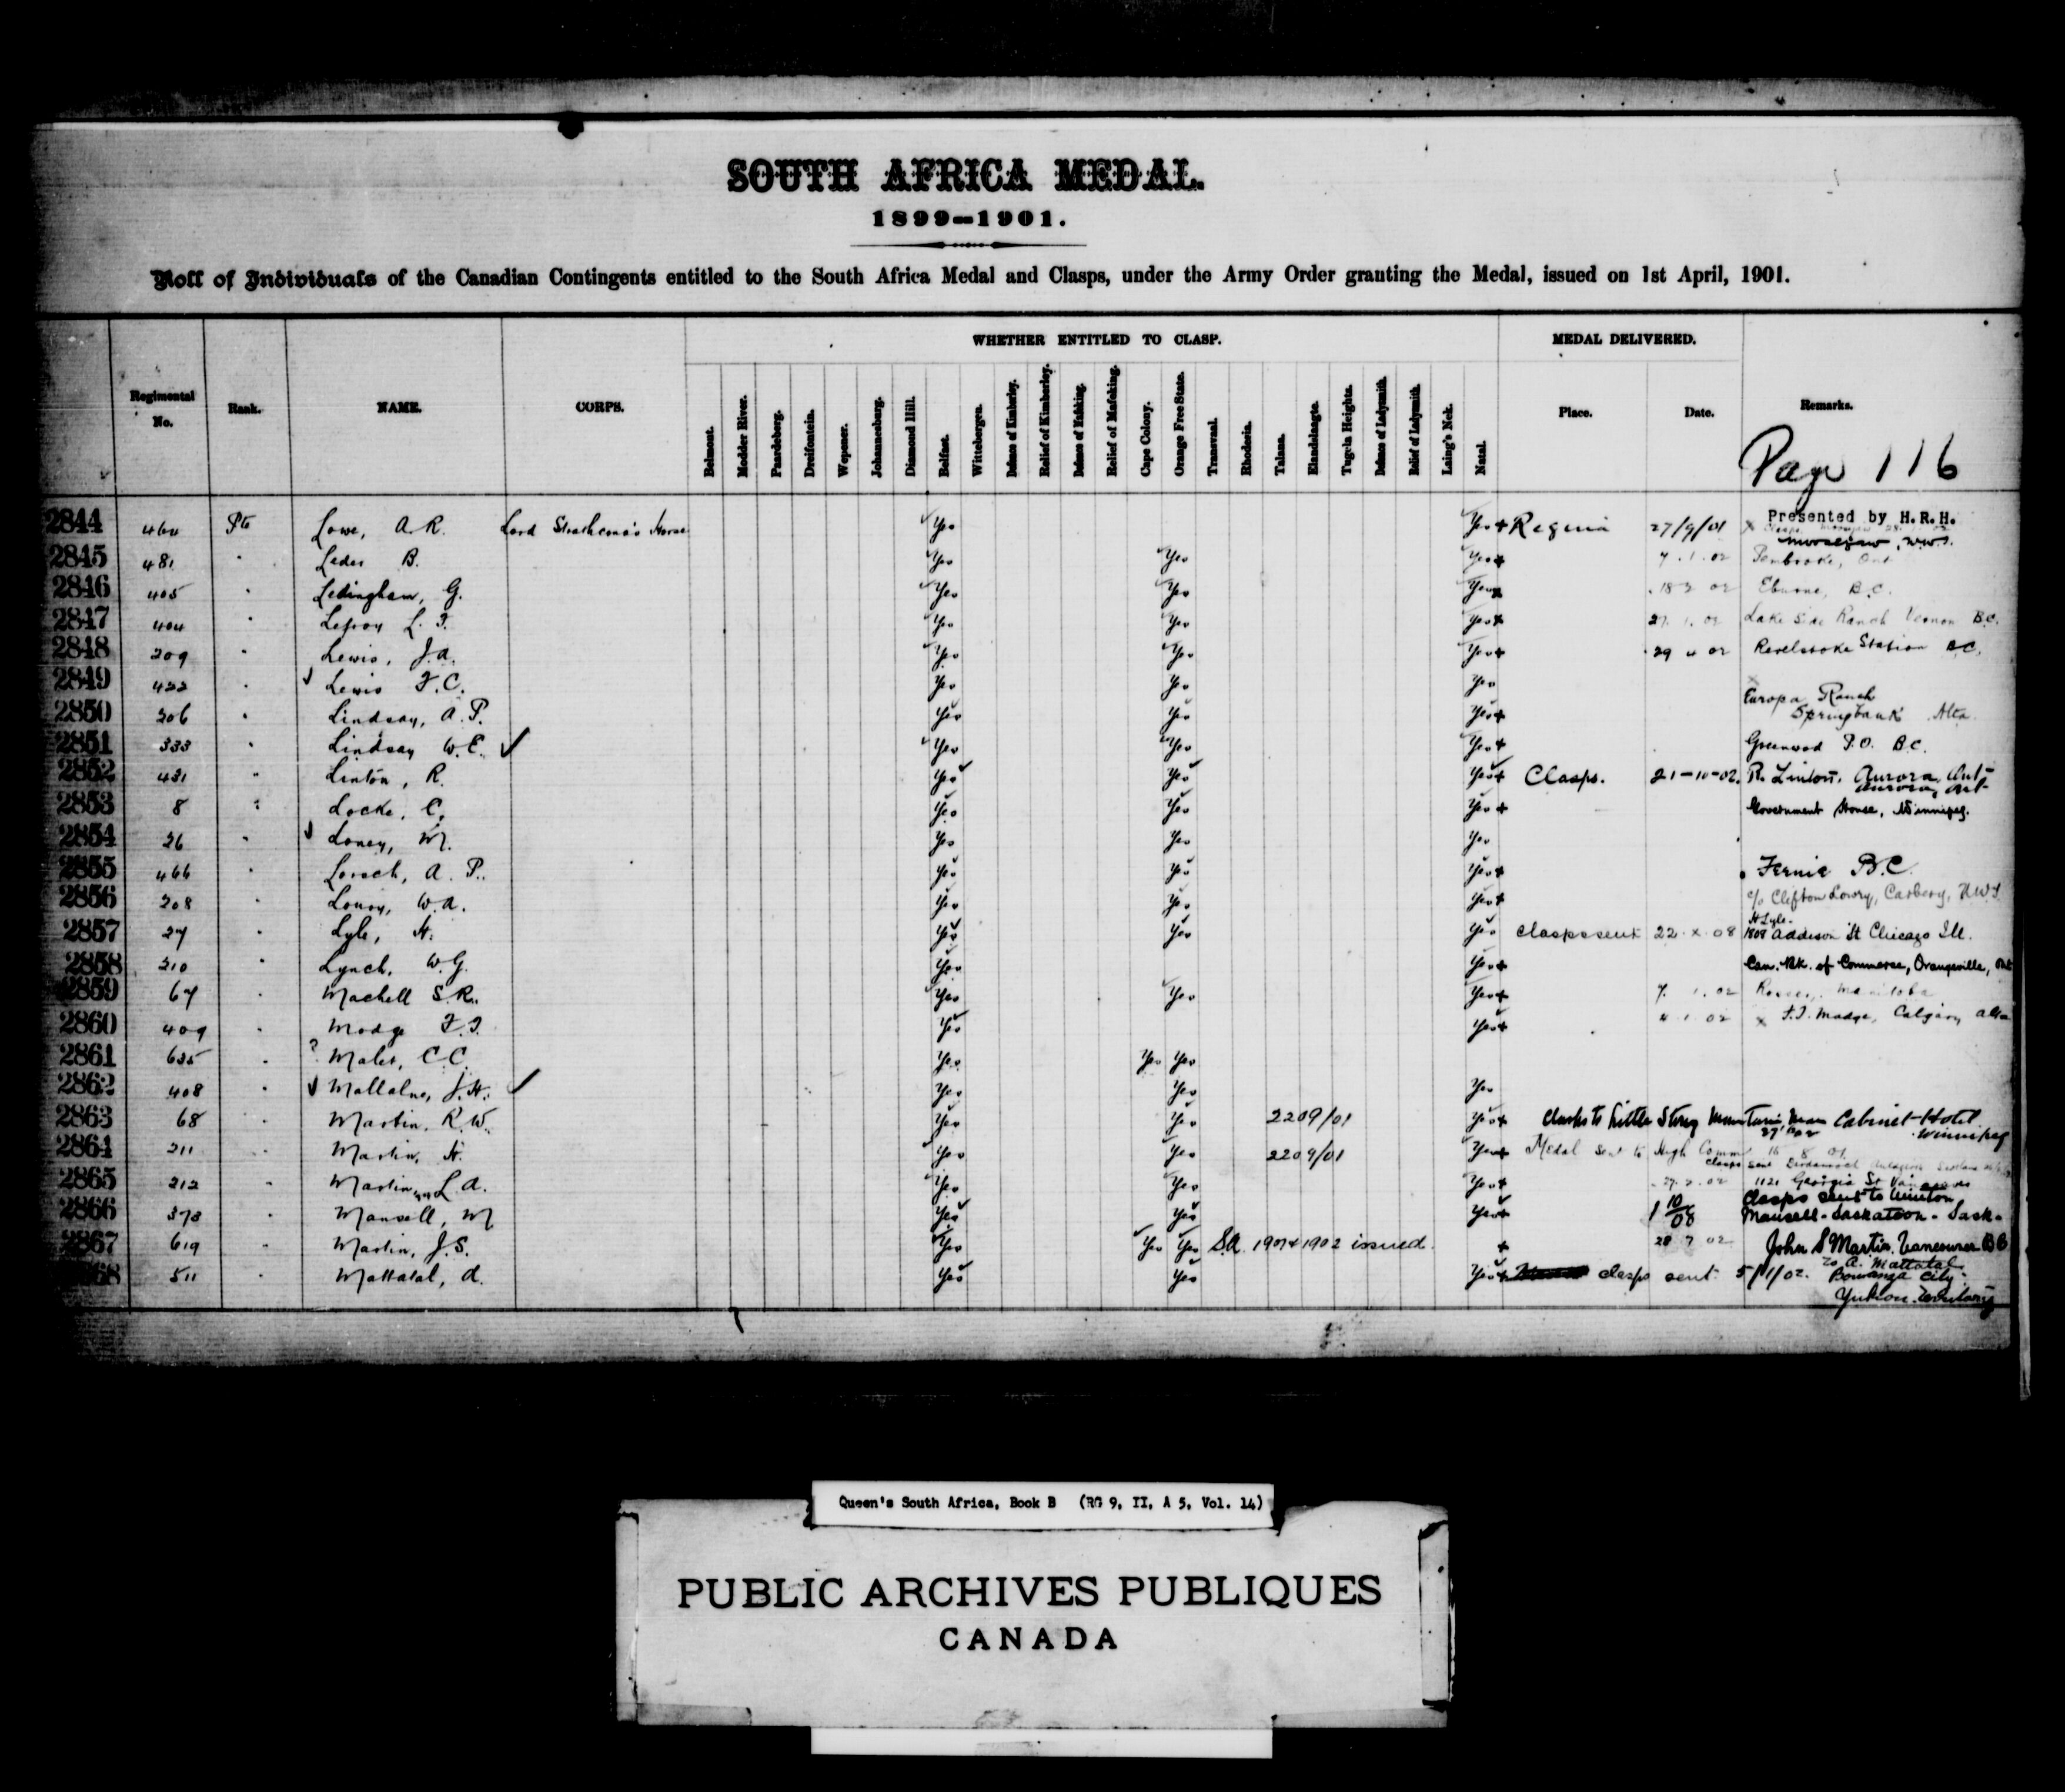 SOUTH AFRICA MEDAL.
1899-1901.
Roll of Individuals of the Canadian Contingents entitled to the South Africa Medal and Clasps, under the Army Order granting the Medal, issued on 1st April, 1901.
WHETHER ENTITLED TO CLASP. MEDAL DELIVERED.
Regimental No. Rank. NAME. CORPS. Belmont. Modder River. Paardeberg. Dreifontein. Wepener. Johannesburg. Diamond Hill. Belfast. Wittebergen. Defense of Kimberley. Relief of Kimberley. Defense of Mafeking. Relief of Mafeking. Cape Colony. Orange Free State. Transvaal. Rhodesia. Talana. Elandslaagte. Tugela Heights. Defense of Ladysmith. Relief of Ladysmith. Laing's Nek. Natal. Place. Date. Remarks.
Page 116
2844 464 Pte Lowe, A.R. Lord Strathcona's Horse Yes Yes + Regina 27/9/01 Presented by H.R.H.
Moosejaw, N.W.T.
2845 481 " B. Yes Yes Yes + 7.1.02 Pembroke, Ont
2846 405 " Ledingham, G. Yes Yes Yes 18 2 02 Eburne, B.C.
2847 404 " Lefroy L. Yes Yes Yes + 27.1.02 Lake Side Ranch Vernon B.C.
2848 209 " Lewis, J.A. Yes Yes Yes + 29 4 02 Revelstoke Station B.C.
2849 422 " Lewis F.C. Yes Yes Yes
2850 206 " Lindsay, A.P. Yes Yes Yes + Europa Ranch
Springbank Alta.
2851 333 " Lindsay W.E. ✓ Yes Yes Yes + Greenwood P.O. B.C.
2852 431 " Linton, R. Yes Yes Yes + Clasps. 21-10-02. R. Linton, Aurora, Ont
Aurora, Ont
2853 8 " Locke, C. Yes Yes Yes + Government House, Winnipeg.
2854 26 " Loney, M. Yes Yes Yes
2855 466 " Lorsch, A. P. Yes Yes Yes + Fernie B.C.
2856 208 " W.A. Yes Yes Yes + c/o Clifton Lowry, Carberry, N.W.T.
2857 27 " Lyle, H. Yes Yes Yes Clasps sent 22.X.08 H Lyle.
1808 Addison St Chicago Ill.
2858 210 " Lynch, W.G. Yes Yes + Can. Bk. of Commerce, Orangeville, Ont
2859 67 " Machell S.R. Yes Yes Yes + 7. 1.02 Manitoba
2860 409 " Madge F.J. Yes Yes + 4.1.02 F.J. Madge, Calgary Alta
2861 635 " ? Malet, C.C. Yes Yes Yes
2862 408 " J.H. ✓ Yes Yes Yes
2863 68 " Martin, R.W. Yes Yes 2209/01 Yes + Clasps to Little Stony Mountain Man Cabinet Hotel
Winnipeg
2864 211 " Martin, H. Yes Yes 2209/01 Yes + Medal sent to High Comm 16 8 01
Clasps sent
2865 212 " Martin, L.A. Yes Yes Yes + 27.2.02 1121 Georgia St Vancouver
2866 373 " Mansell, M Yes Yes Yes + 1 10/08 Clasps sent to
Mansell - Saskatoon - Sask.
2867 619 " Martin, J.S. Yes Yes Yes S.A. 1901+1902 issued. + 28 7 02 John S Martin Vancouver BC
68 511 " Mattatal, A. Yes Yes Yes + clasps sent 5/1/02. To A. Mattatal
City
Yukon Territory
Queen's South Africa, Book B (RG 9, II, A 5, Vol. 14)
PUBLIC ARCHIVES PUBLIQUES
CANADA